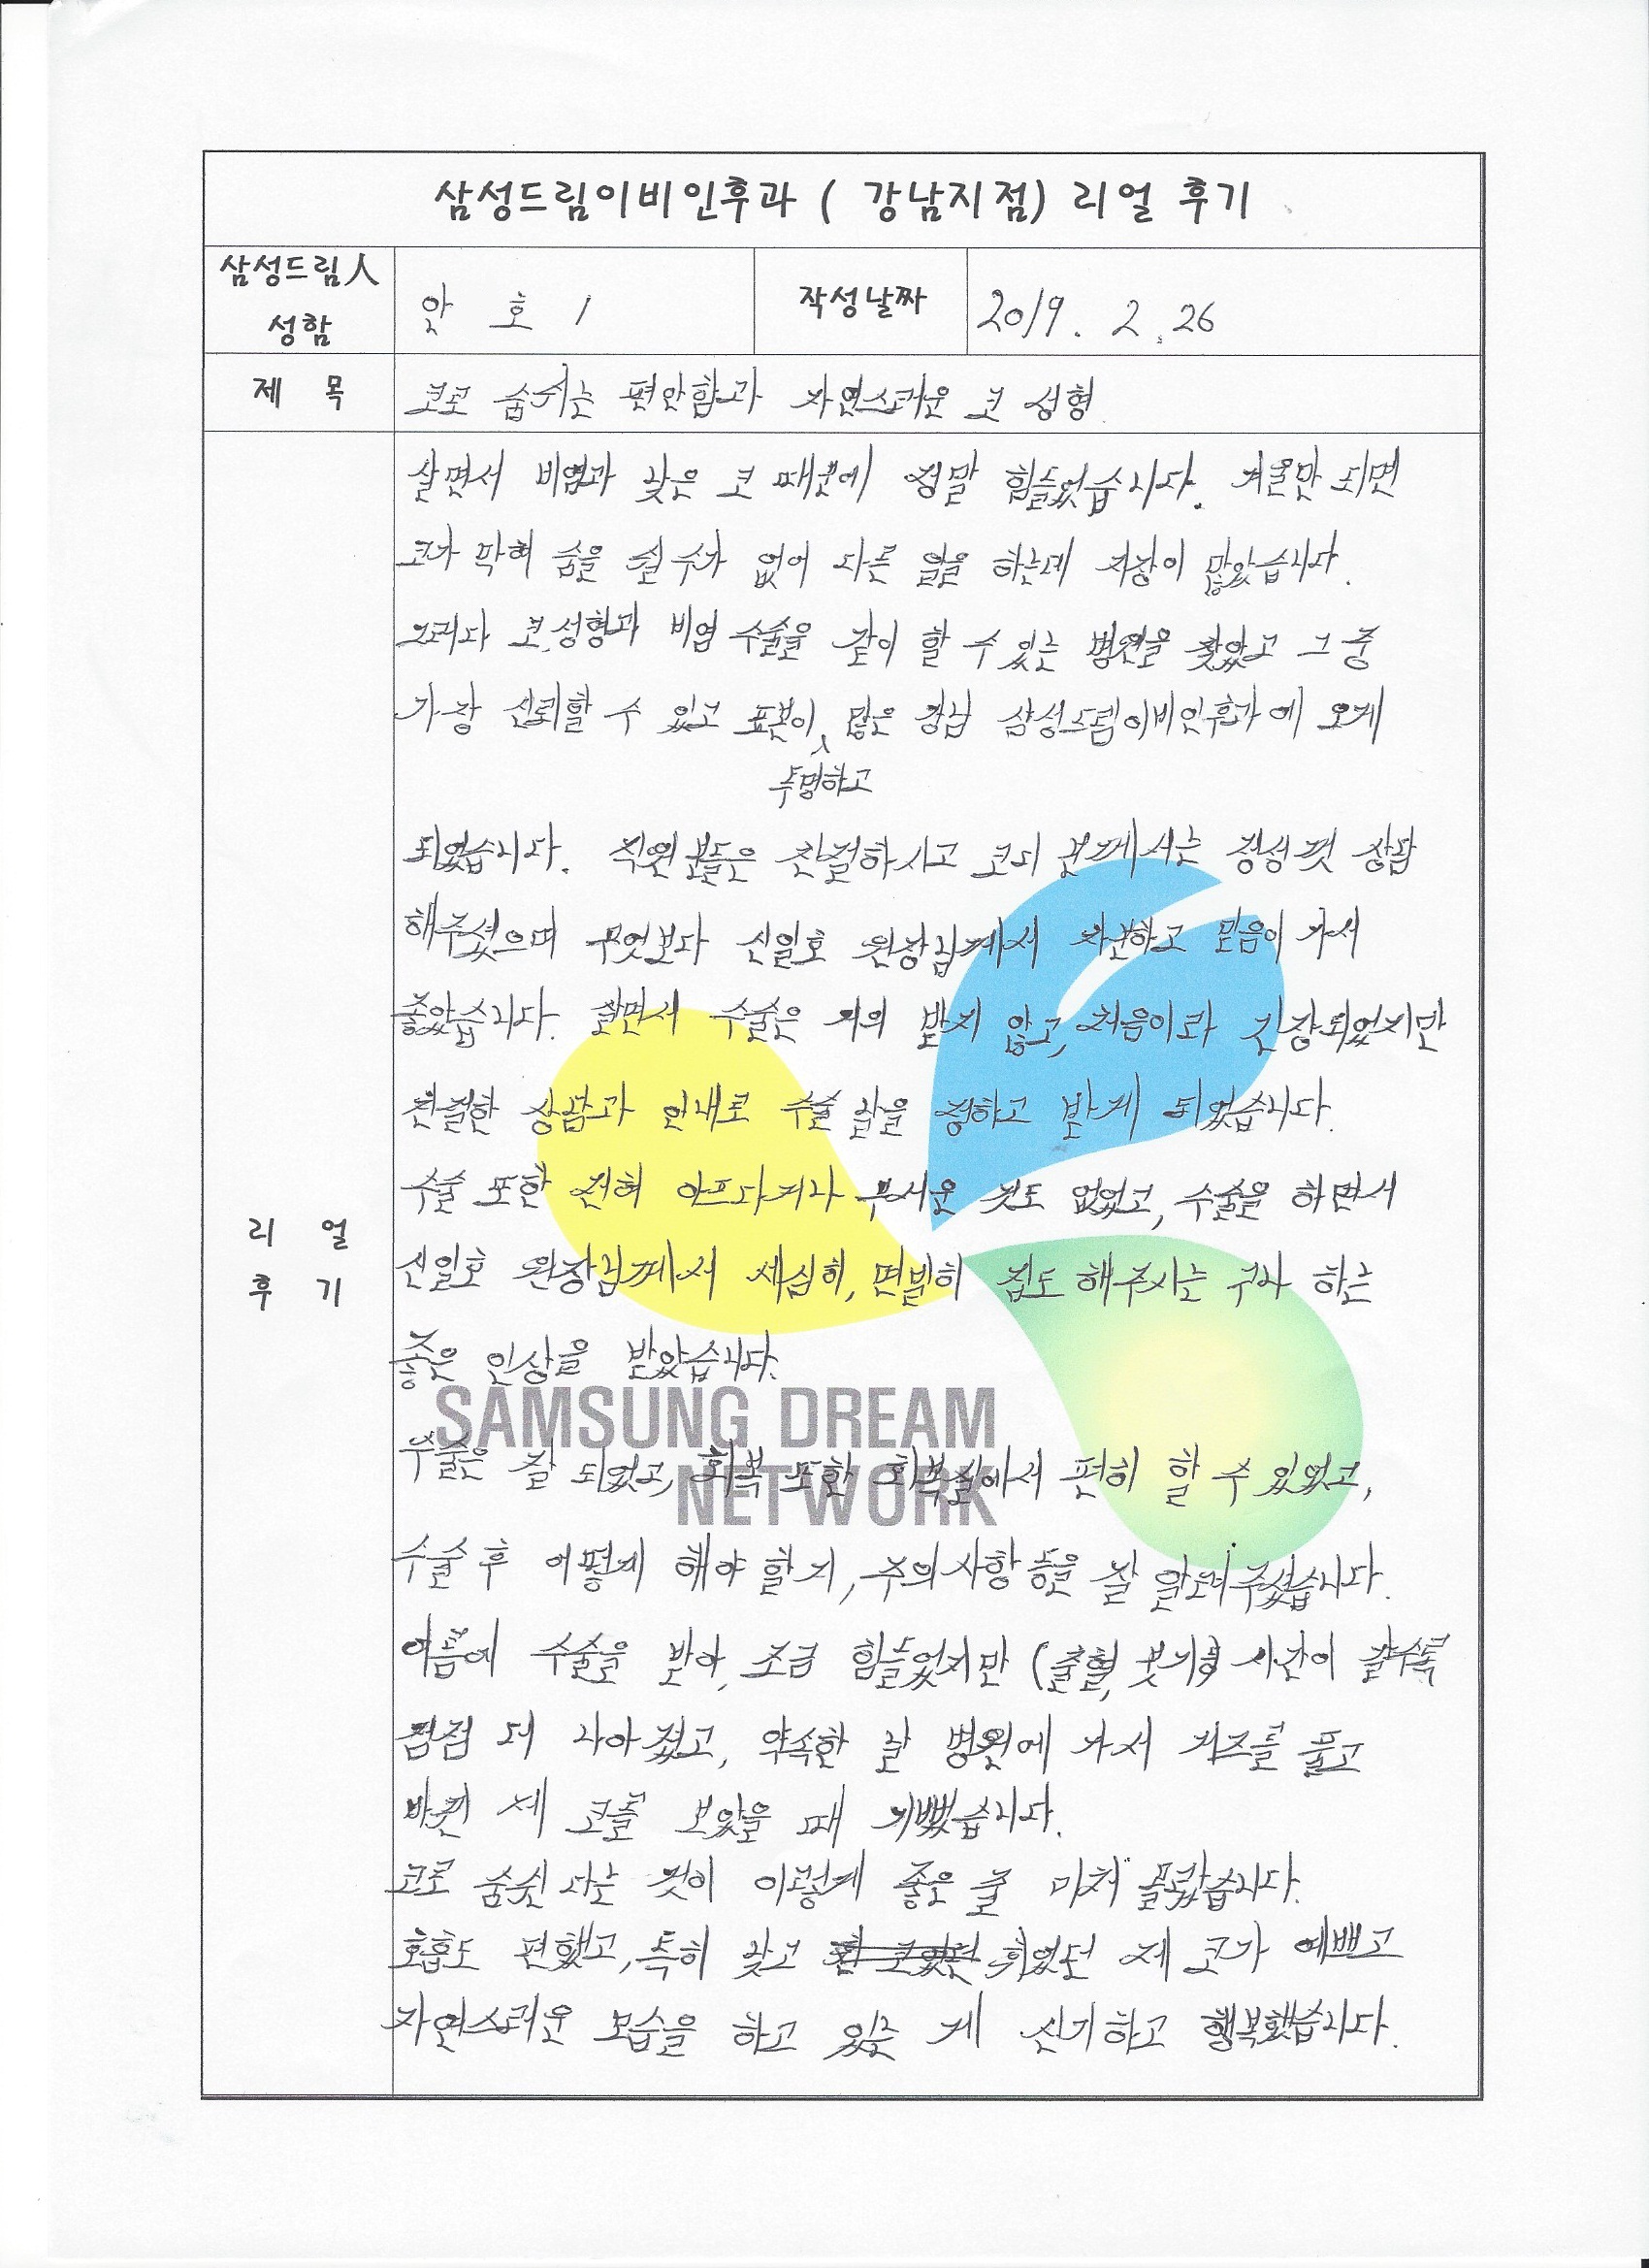 삼성드림이비인후과 ( 강남지점) 리얼 후기
삼성드림人 성함
안 호
작성날짜
2019. 2. 26
제 목
코로 숨쉬는 편안함과 자연스러운 코 성형
리 얼
후 기
살면서 비염과 낮은 코 때문에 정말 힘들었습니다. 겨울만 되면
코가 막혀 숨을 쉴 수가 없어 다른 일을 하는데 지장이 많았습니다.
그러다 코 성형과 비염 수술을 같이 할 수 있는 병원을 찾았고 그 중
가장 신뢰할 수 있고 표본이 많은 강남 삼성드림이비인후과에 오게
투명하고
되었습니다. 직원분들은 친절하시고 코디 분께서는 정성껏 상담
해주셨으며 무엇보다 신일호 원장님께서 차분하고 믿음이 가서
좋았습니다. 살면서 수술은 거의 받지 않고, 처음이라 긴장되었지만
친절한 상담과 안내로 수술 날을 정하고 받게 되었습니다.
수술 또한 전혀 아프다거나 무서운 것도 없었고, 수술을 하면서
신일호 원장님께서 세심히, 면밀히 집도 해주시는 구나 하는
좋은 인상을 받았습니다.
수술은 잘 되었고, 회복 또한 회복실에서 편히 할 수 있었고,
수술 후 어떻게 해야 할지, 주의사항 등을 잘 알려주셨습니다.
여름에 수술을 받아, 조금 힘들었지만 (출혈, 붓기) 시간이 갈수록
점점 더 나아졌고, 약속한 날 병원에 가서 거즈를 풀고
바뀐 제 코를 보았을 때 기뻤습니다.
코로 숨쉰다는 것이 이렇게 좋은 줄 미처 몰랐습니다.
호흡도 편했고, 특히 낮고 휘었던 제 코가 예쁘고
자연스러운 모습을 하고 있는 게 신기하고 행복했습니다.
SAMSUNG DREAM
NETWORK